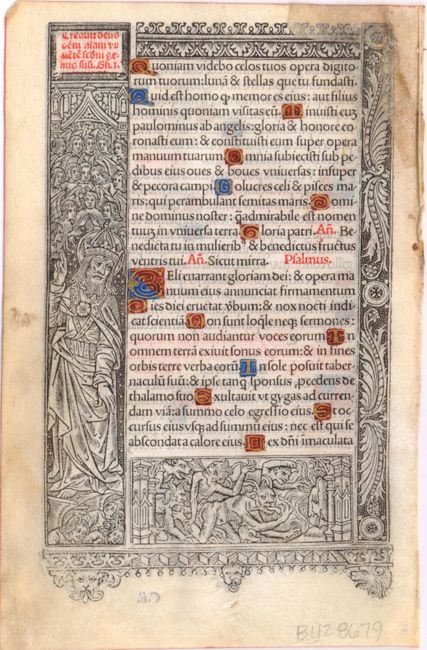 Creauit deus
oēm aīam vi
uētē scd̄m ge-
nus suū. Gn̄. I.
Quoniam videbo celos tuos opera digito
rum tuorum: lunā & stellas que tu fundasti.
Quid est homo ꝙ memor es eius: aut filius
hominis quoniam visitas eū. Minuisti euʒ
paulominus ab angelis: gloria & honore co
ronasti eum: & constituisti eum super opera
manuum tuarum. Omnia subiecisti sub pe
dibus eius oues & boues vniuersas: insuper
& pecora campi. Uolucres celi & pisces ma-
ris: qui perambulant semitas maris. Domi
ne dominus noster: q̄ admirabile est nomen
tuuʒ in vniuersa terra. Gloria patri. Añ. Be
nedicta tu in mulieribꝰ & benedictus fructus
ventris tui. Añ. Sicut mirra. Psalmus.
CEli enarrant gloriam dei: & opera ma
nuum eius annunciat firmamentum
Dies diei eructat v̄bum: & nox nocti indi
cat scientiā. Non sunt loq̄le neqꝫ sermones:
quorum non audiantur voces eorum. In
omnem terrā exiuit sonus eorum: & in fines
orbis terre verba eorū. In sole posuit taber
naculū suū: & ipse tanqꝫ sponsus ꝓcedens de
thalamo suo. Exultauit vt gygas ad curren
dam viā: a summo celo egressio eius. Et oc-
cursus eius vsqꝫ ad summū eius: nec est qui se
abscondat a calore eius. Lex dn̄i īmaculata
BH2 8679